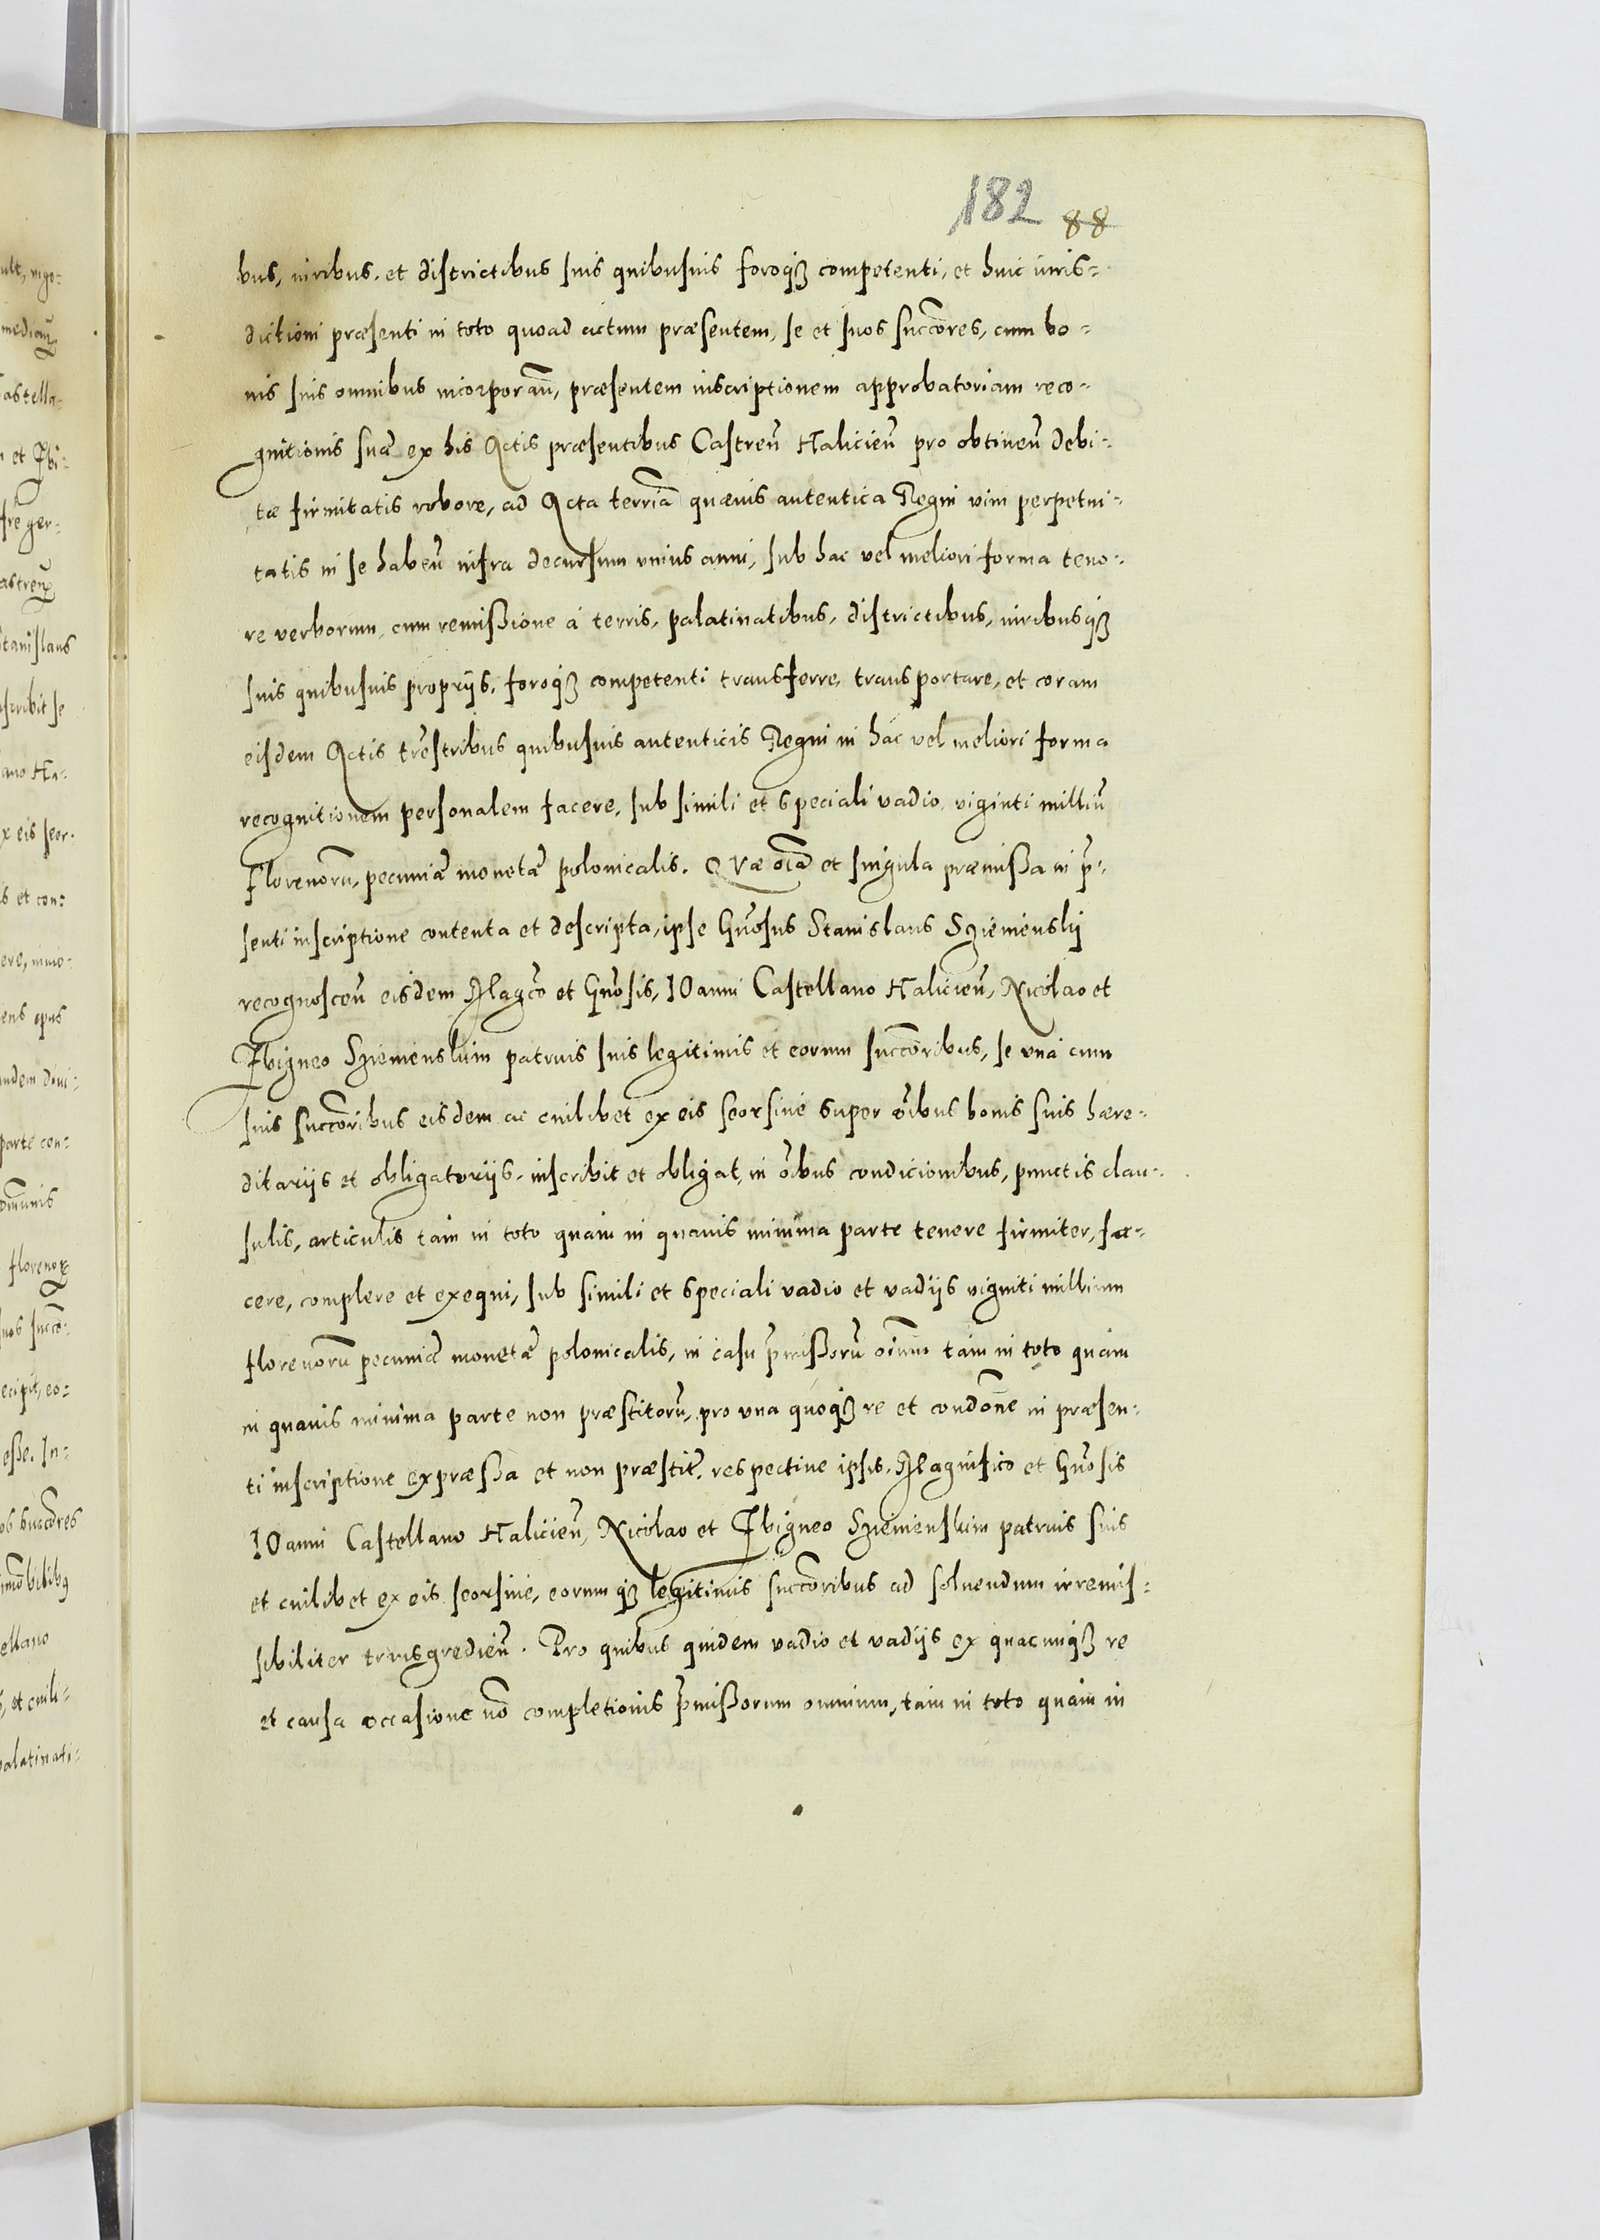 182 88
bus, iuribus, et districtibus suis quibusuis foroqꝫ competenti, et huic iuris-
dictioni præsenti in toto quoad actum præsentem, se et suos succōres, cum bo-
nis suis omnibus incorporañ, præsentem inscriptionem approbatoriam reco-
gnitionis suæ ex his Actis præsentibus Castreñ Halicieñ pro obtineñ debi-
tæ firmitatis robore, ad Acta terr̃ia quæuis autentica Regni vim perpetui-
tatis in se habeñ infra decursum vnius anni, sub hac vel meliori forma teno-
re verborum, cum remissione à terris, palatinatibus, districtibus, iuribusqꝫ
suis quibusuis proprijs, foroqꝫ competenti transferre, transportare, et coram
eisdem Actis tr̃estribus quibusuis autenticis Regni in hac vel meliori forma
recognitionem personalem facere, sub simili et speciali vadio viginti milliū
Florenorū, pecuniæ monetæ polonicalis. QVæ oīa et singula præmissa in p̃-
senti inscriptione contenta et descripta, ipse Gñosus Stanislaus Sziemienskij
recognosceñ eisdem Magco et Gñosis, IOanni Castellano Halicieñ, Nicolao et
Zbigneo Sziemienskim patruis suis legitimis et eorum succōribus, se vnà cum
suis succōribus eisdem ac cuilibet ex eis seorsiue super oībus bonis suis hære-
ditarijs et obligatorijs, inscribit et obligat, in oībus condicionibus, punctis clau-
sulis, articulis tam in toto quam in quauis minima parte tenere firmiter, fa-
cere, complere et exequi, sub simili et speciali vadio et vadijs viginti millium
florenorū pecuniæ monetæ polonicalis, in casu p̃missorū oīum tam in toto quam
in quauis minima parte non præstitorū, pro vna quoqꝫ re et condōne in præsen-
ti inscriptione expræssa et non præstit̃. respectiue ipsis, Magnifico et Gñosis
IOanni Castellano Halicieñ, Nicolao et Zbigneo Sziemienskim patruis suis
et cuilibet ex eis seorsiue, eorumqꝫ legitimis succōribus ad soluendum irremis-
sibiliter trnsgredieñ. Pro quibus quidem vadio et vadijs ex quacunqꝫ re
et causa occasione nō completionis p̃missorum omnium, tam in toto quam in